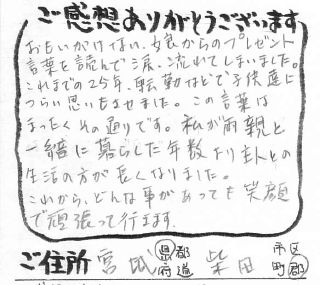 ご感想ありがとうございます
おもいがけない、娘からのプレゼント
言葉を読んで涙、流れてしまいました。
これまでの25年、転勤などで子供達に
つらい思いもさせました。この言葉は
まったくその通りです。私が両親と
一緒に暮らした年数より主人との
生活の方が長くなりました。
これから、どんな事があっても笑顔
で頑張って行きます。
ご住所 宮城 県都府道 柴田 市区町郡